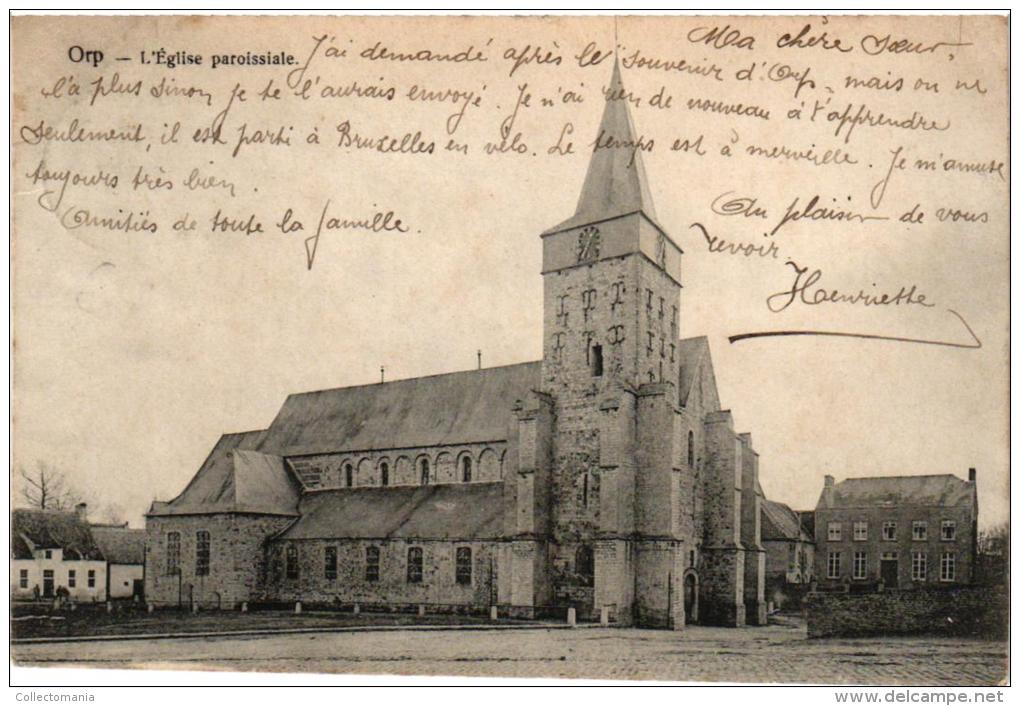 Orp — L'Église paroissiale.
Ma chère Sœur,
J'ai demandé après le souvenir d'Orp, mais on ne
l'a plus sinon je te l'aurais envoyé. Je n'ai rien de nouveau à t'apprendre
seulement, il est parti à Bruxelles en vélo. Le temps est à merveille. Je m'amuse
toujours très bien.
Amitiés de toute la famille.
Au plaisir de vous
revoir.
Henriette
Collectomania
www.delcampe.net